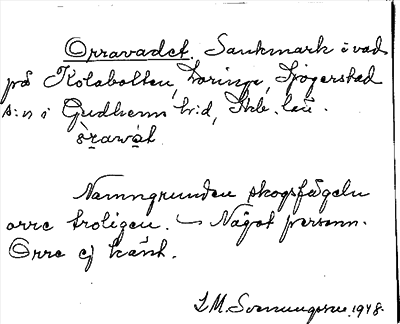 Orravadet. Sankmark o vad
på Kolabolten, Loringa, Sjogerstad
s:n i Gudhems hrd, Skb. län.
òrawàt
Namngrunden skogsfågeln
orre troligen. – Något personn.
Orre ej känt.
1948.